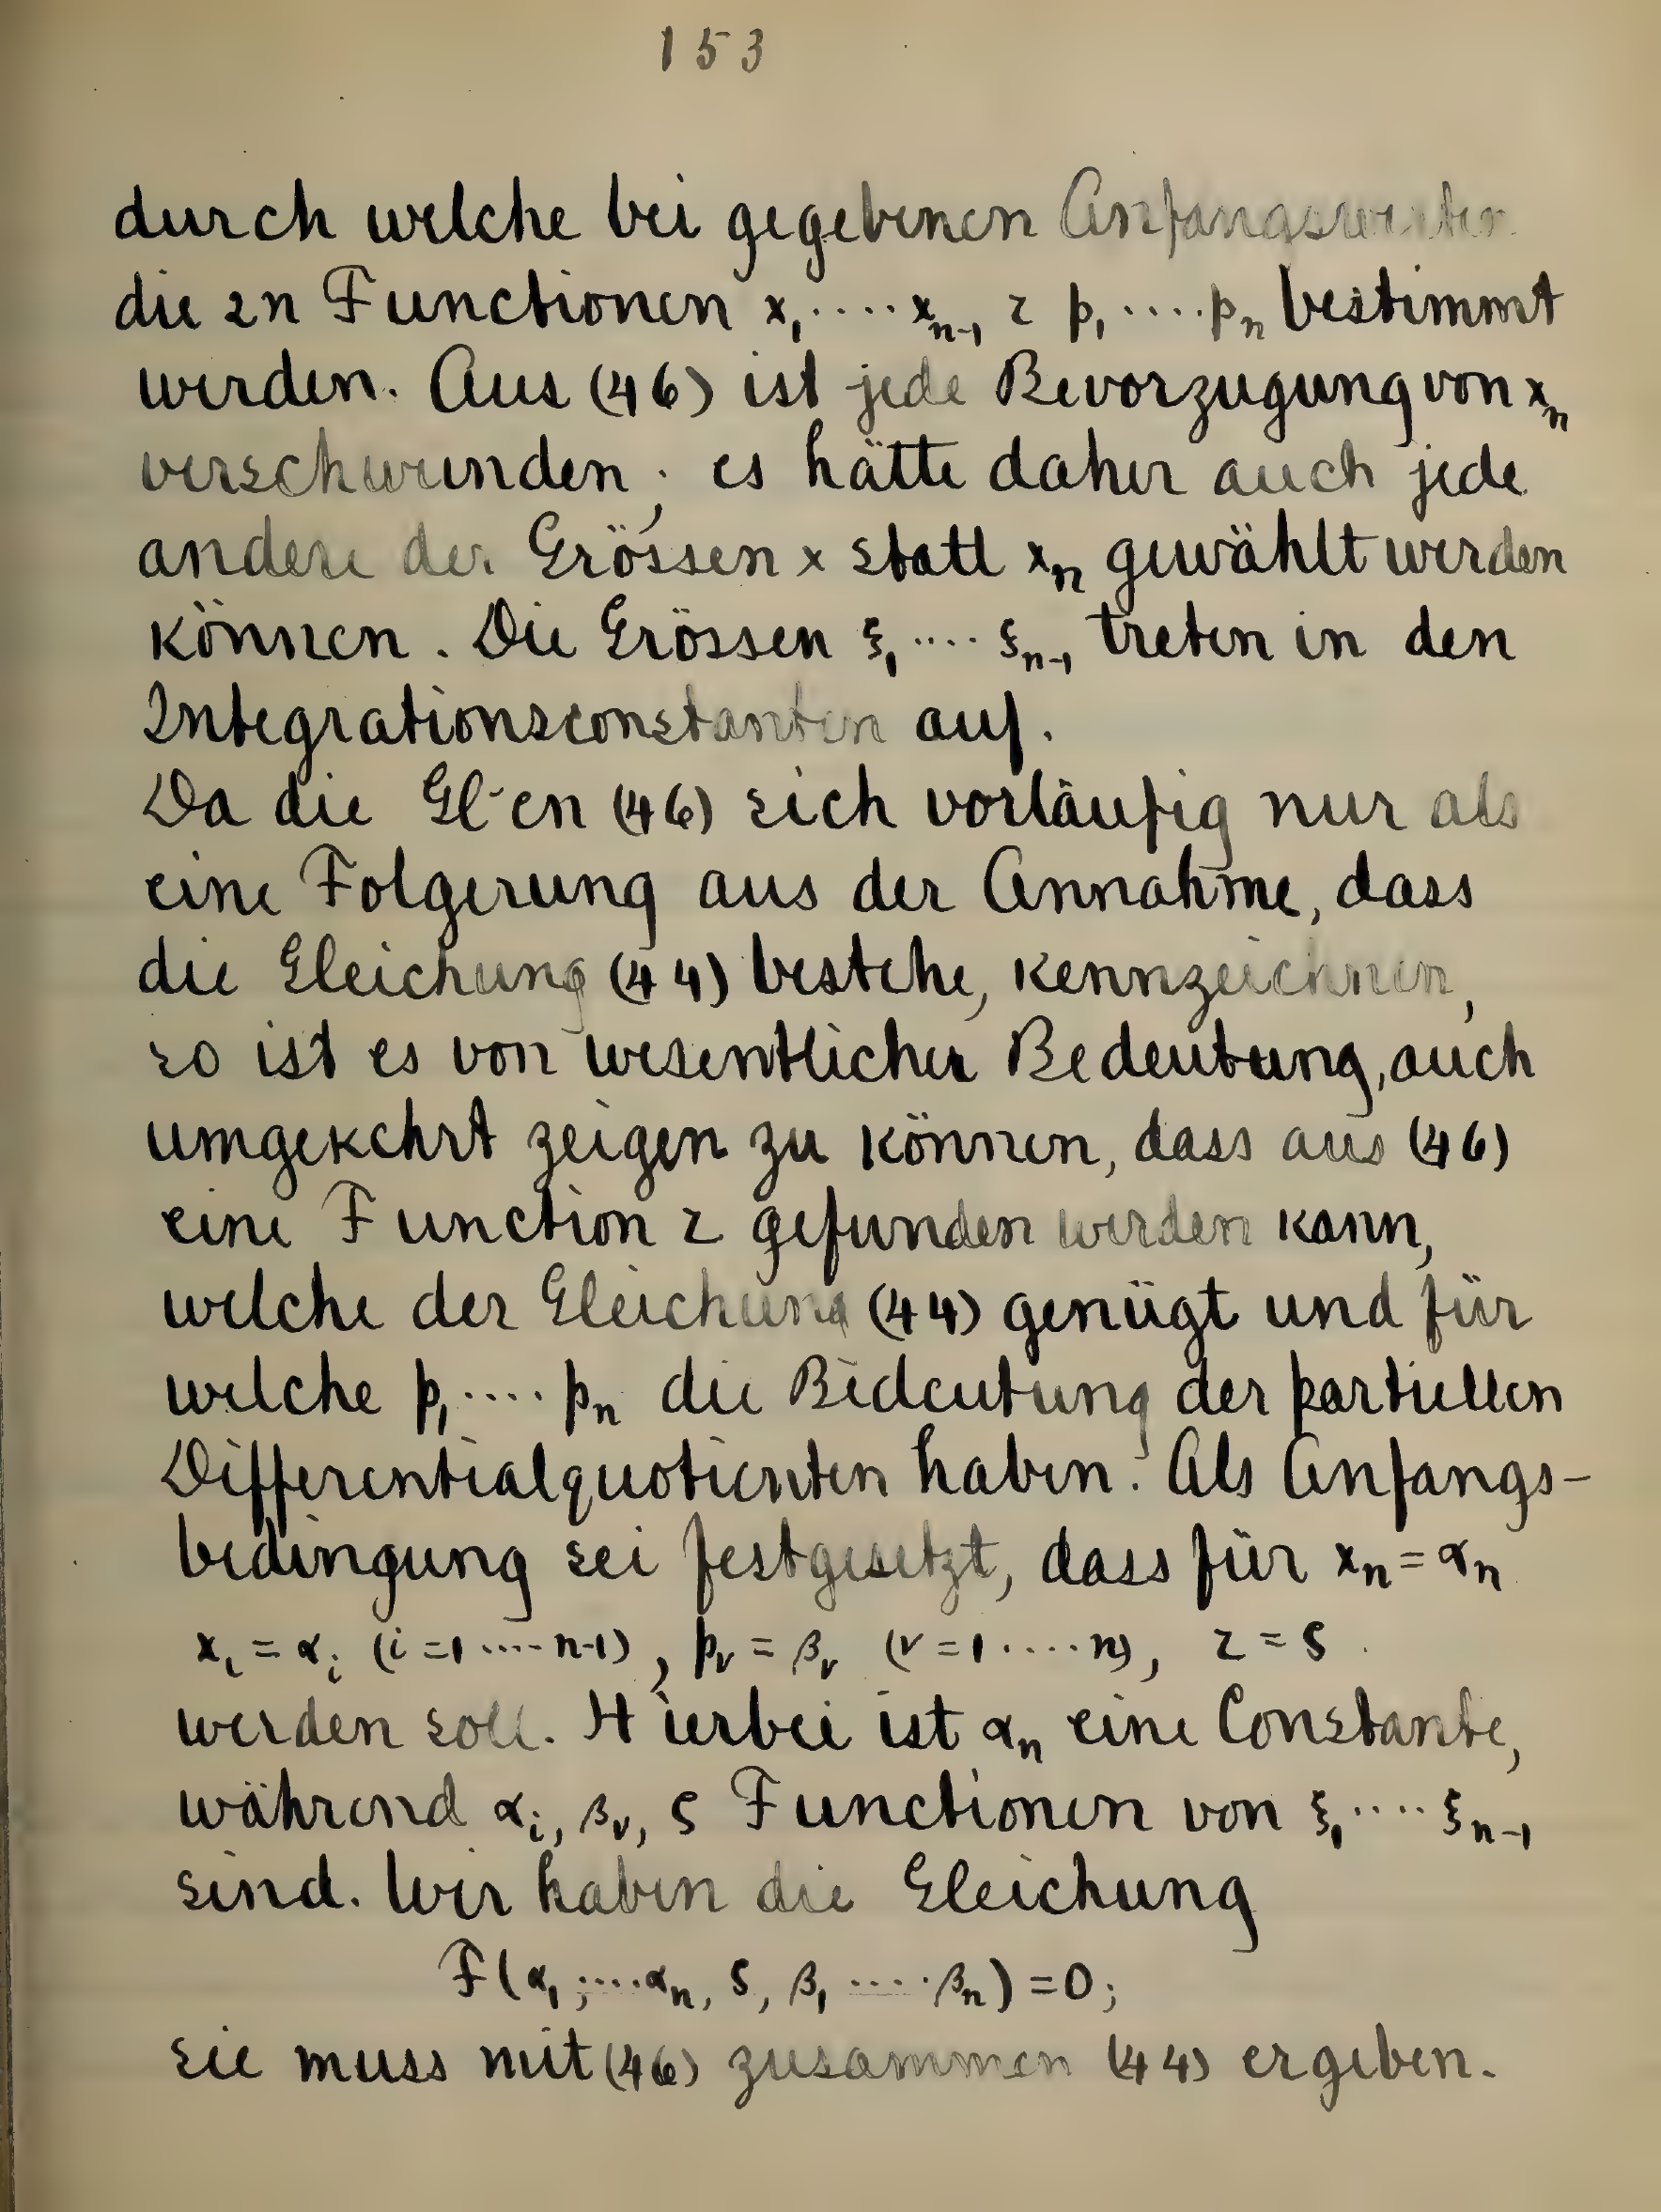 153
durch welche bei gegebenen Anfangswerten
die 2n Functionen x₁....xₙ₋₁ z p₁....pₙ bestimmt
werden. Aus (46) ist jede Bevorzugung von xₙ
verschwunden; es hätte daher auch jede
andere der Grössen x statt xₙ gewählt werden
können. Die Grössen ξ₁....ξₙ₋₁ treten in den
Integrationsconstanten auf.
Da die Gl-en (46) sich vorläufig nur als
eine Folgerung aus der Annahme, dass
die Gleichung (44) bestehe, kennzeichnen,
so ist es von wesentlicher Bedeutung, auch
umgekehrt zeigen zu können, dass aus (46)
eine Function z gefunden werden kann,
welche der Gleichung (44) genügt und für
welche p₁....pₙ die Bedeutung der partiellen
Differentialquotienten haben. Als Anfangs-
bedingung sei festgesetzt, dass für xₙ = αₙ
xᵢ = αᵢ (i=1....n-1), pᵥ = βᵥ (ν=1....n), z = ς
werden soll. Hierbei ist αₙ eine Constante,
während αᵢ, βᵥ, ς Functionen von ξ₁....ξₙ₋₁
sind. Wir haben die Gleichung
F(α₁,....αₙ, ς, β₁....βₙ) = 0;
sie muss mit (46) zusammen (44) ergeben.